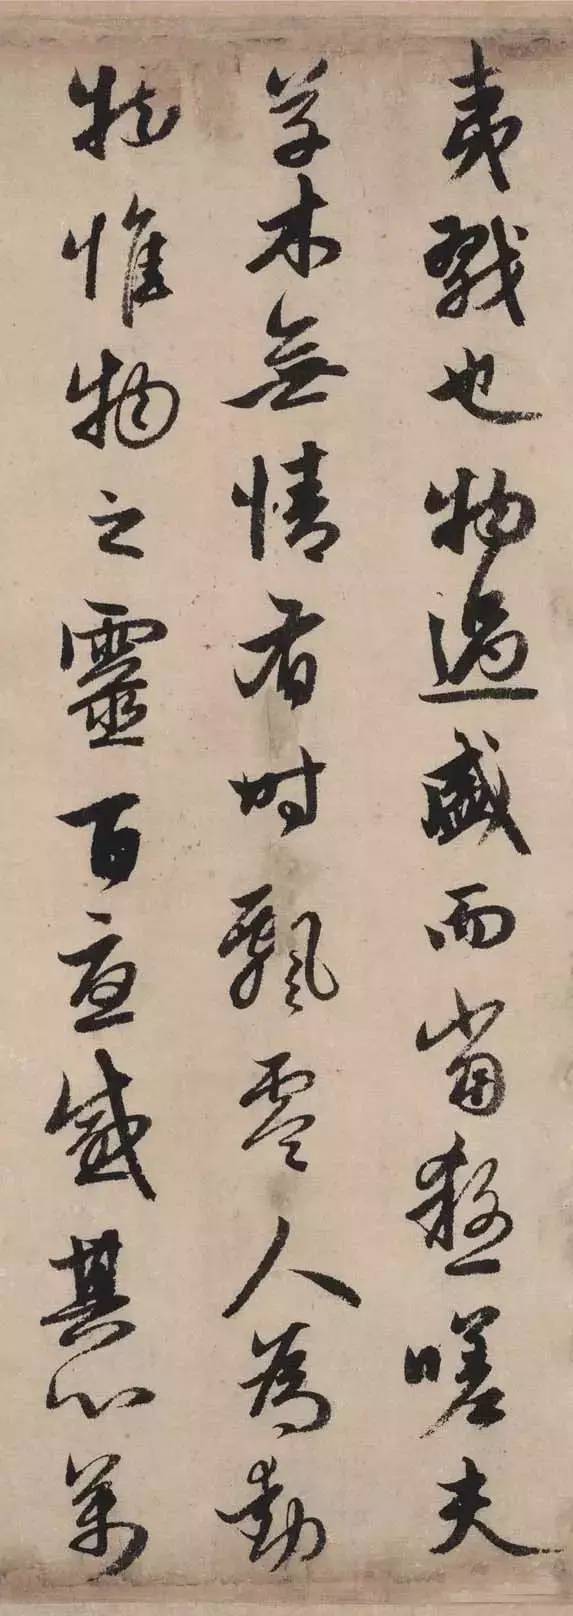 夷戮也物過盛而當殺嗟夫
草木無情有時飄零人為動
物惟物之靈百憂感其心萬